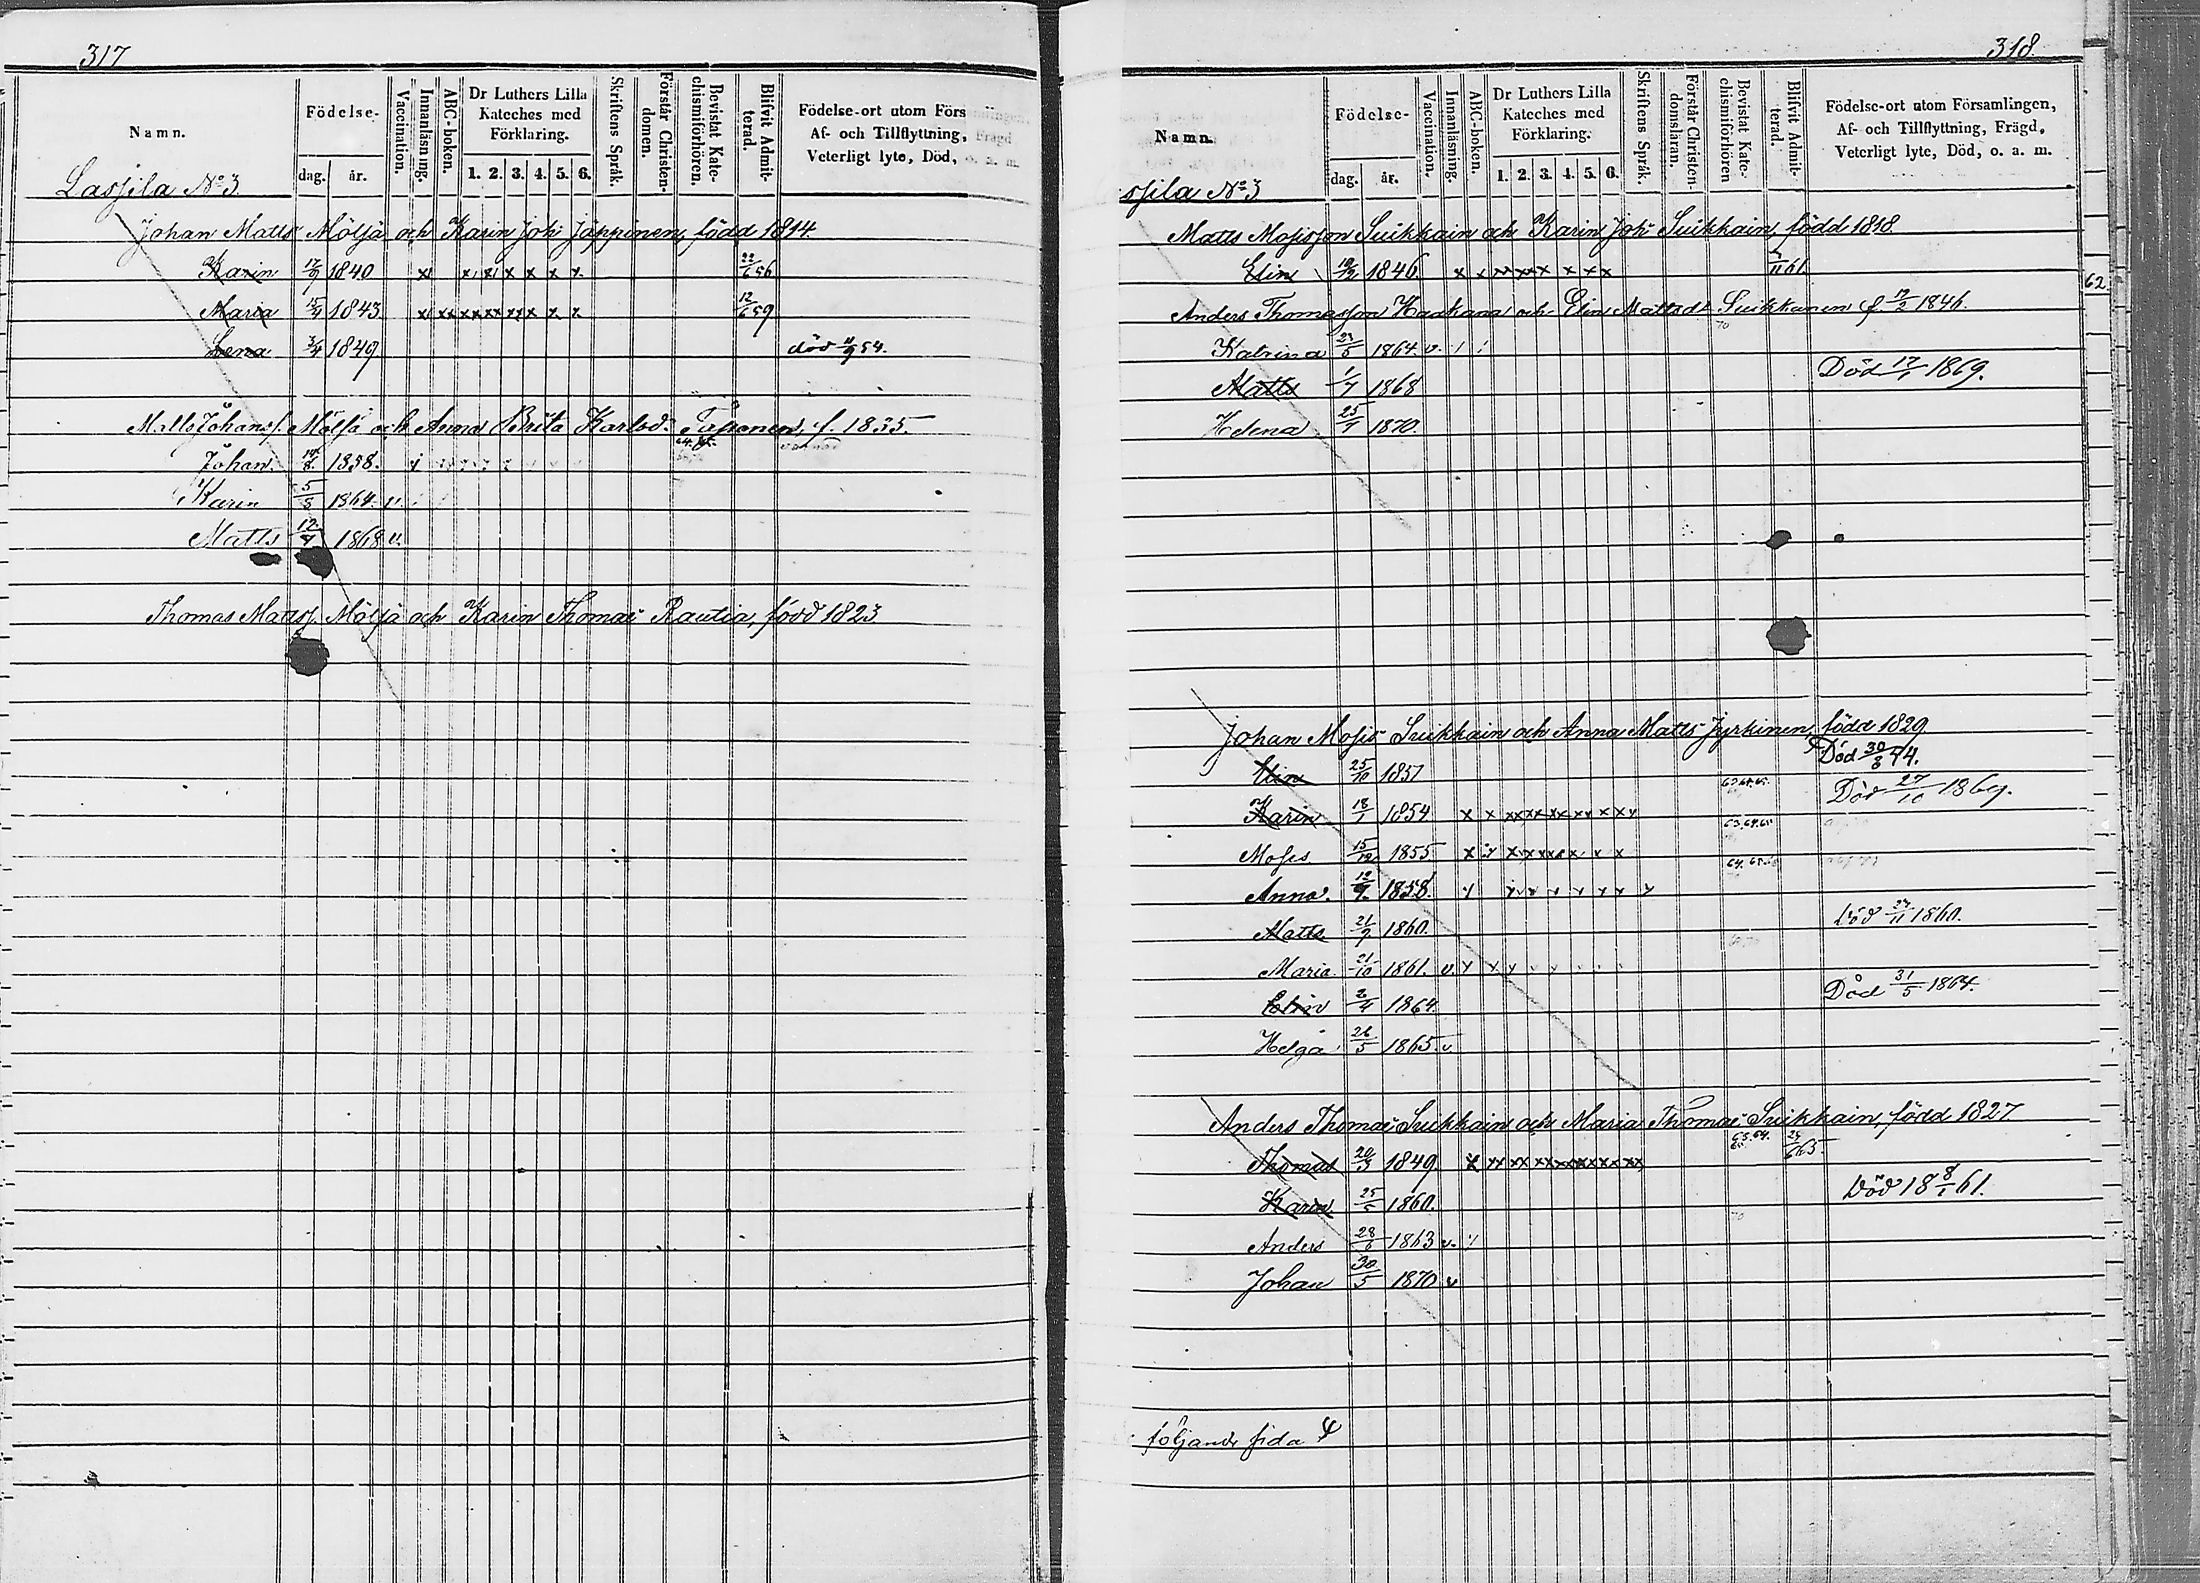 317
Namn.
Födelse-
dag. år.
Vaccination.
Innanläsning.
ABC-boken.
Dr Luthers Lilla Kateches med Förklaring.
1. 2. 3. 4. 5. 6.
Skriftens Språk.
Förstår Christen-domen.
Bevistat Kate-chismiförhören
Blifvit Admit-terad.
Födelse-ort utom Förs
Af- och Tillflyttning, Frägd
Veterligt lyte, Död, o. a. m.
Lassila No 3
Johan Matts Möljä och Karin Joh. Jäppinen, född 1814.
Karin 17/9 1840 x x x x x x x 22/6 56
Maria 15/4 1843 12/6 59
Lena 3/4 1849 död 54.
Matts Johanss. Möljä och Anna Brita Karlsd. f. 1835.
Johan 1858.
Karin 5/5 1864. v.
Matts 12/4 1868 v.
Thomas Mattss. Möljä och Karin Thomas Rautia, född 1823
318.
Namn.
Födelse-
dag. år.
Vaccination.
Innanläsning.
ABC-boken.
Dr Luthers Lilla Kateches med Förklaring.
1. 2. 3. 4. 5. 6.
Skriftens Språk.
Förstår Christen-domsläran.
Bevistat Kate-chismiförhören
Blifvit Admit-terad.
Födelse-ort utom Församlingen,
Af- och Tillflyttning, Frägd,
Veterligt lyte, Död, o. a. m.
ssila No 3
Matts Mosisson Suikkain och Karin Joh. Suikkain, född 1818.
Elin 1846 61
62
Anders Thomasson Haakana och Elin Mattsd. Suikkanen f. 1846.
Katrina 23/5 1864 v.
Matts 1/7 1868 Död 17/1 1869.
Helena 25/1 1870.
Johan Mosis Suikkain och Anna Matts Jyrkinen, född 1829
Elin 25/10 1851 Död 30/8 74.
Karin 18/1 1854 Död 27/10 1869.
Moses 15/12 1855
Anna. 12/9 1858.
Matts 21/9 1860. Död 1860.
Maria 21/10 1861. v.
Elin 2/4 1864. Död 31/5 1864.
Helga 26/5 1865. v.
Anders Thomas Suikkain och Maria Thomas Suikkain, född 1827
Thomas 20/3 1849 24/6 65.
Karin 25/5 1860. Död 18 8/1 61.
Anders 28/6 1863 v.
Johan 30/5 1870 v
följande sida